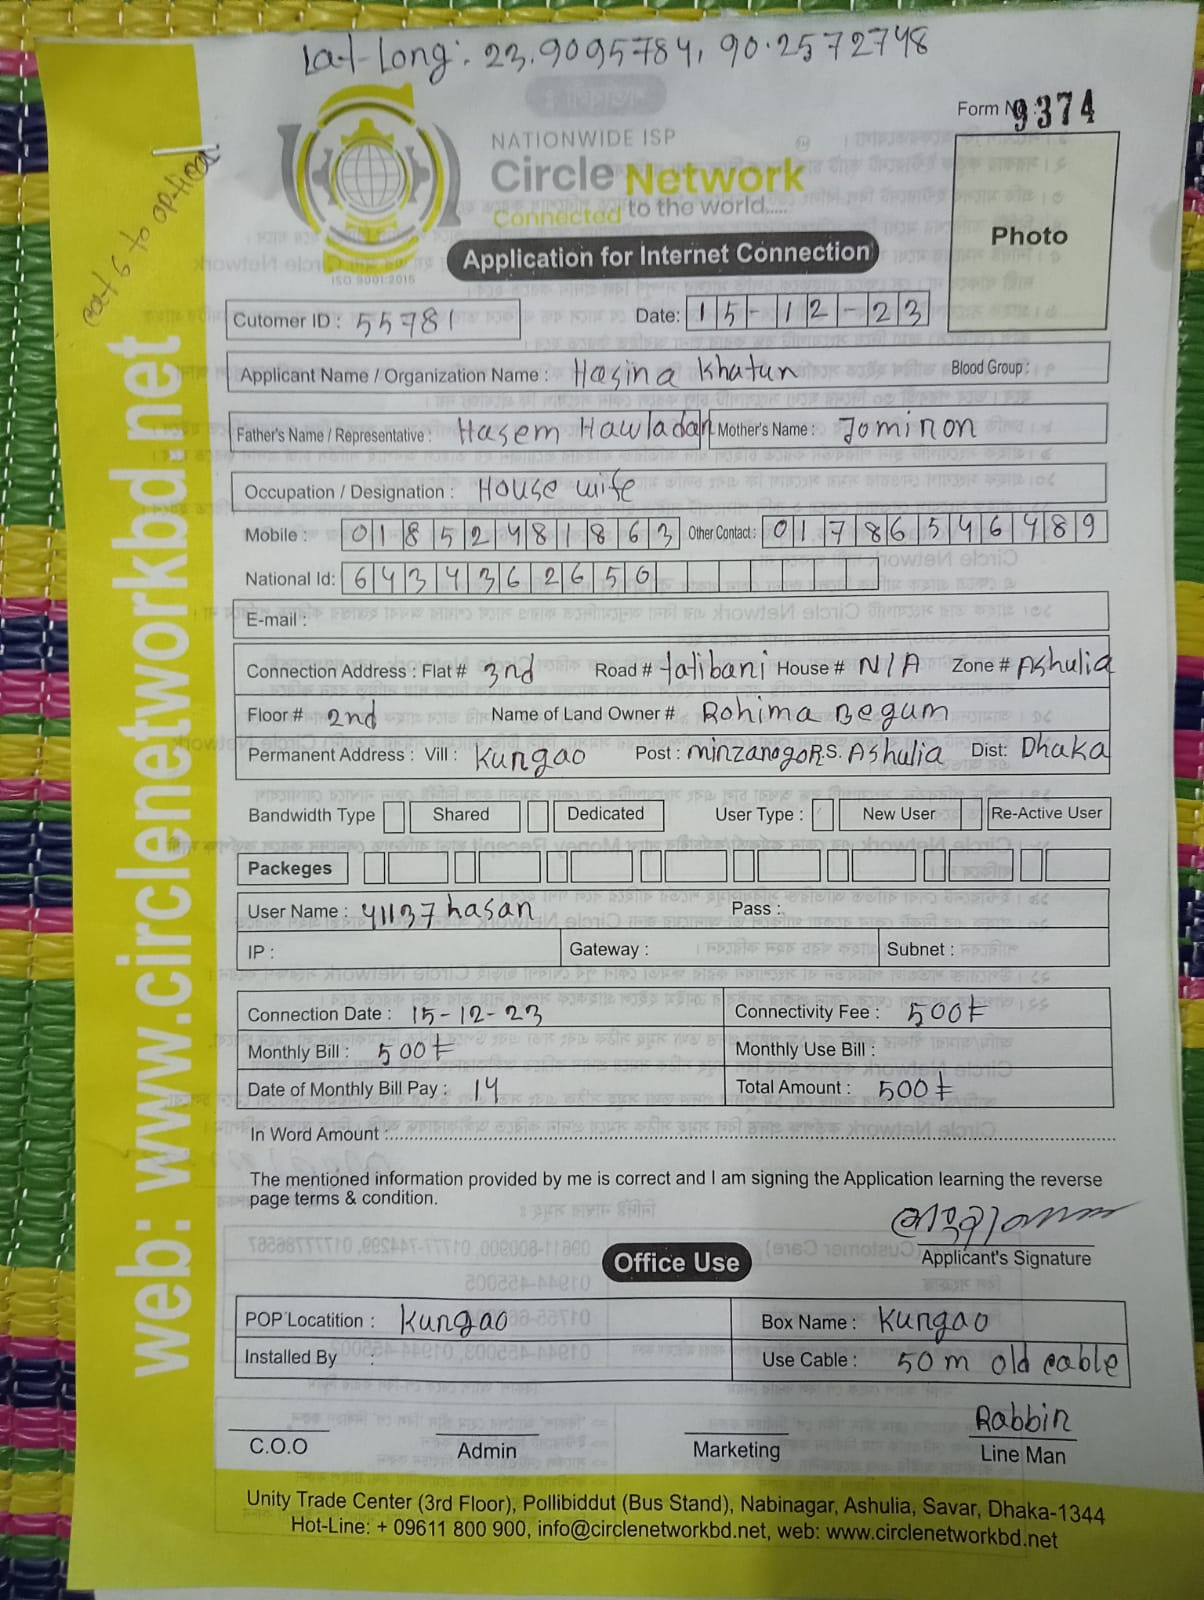 Lat-Long: 23.9095784, 90.2572748
Form No 9374
cat 6 to optical
NATIONWIDE ISP
Circle Network
Connected to the world.....
ISO 9001:2015
Application for Internet Connection
Photo
Cutomer ID : 55781
Date: 15-12-23
Applicant Name / Organization Name : Hasina Khatun Blood Group :
Father's Name / Representative : Hasem Hawladar Mother's Name : Jomiron
Occupation / Designation : House wife
Mobile : 01852481863 Other Contact : 01786546489
National Id: 6434362650
E-mail :
Connection Address : Flat # 3nd Road # talibani House # N/A Zone # Ashulia
Floor # 2nd Name of Land Owner # Rohima Begum
Permanent Address : Vill : Kungao Post : minzanago P.S. Ashulia Dist: Dhaka
Bandwidth Type Shared Dedicated User Type : New User Re-Active User
Packeges
User Name : 41137hasan Pass :
IP : Gateway : Subnet :
Connection Date : 15-12-23 Connectivity Fee : 500৳
Monthly Bill : 500৳ Monthly Use Bill :
Date of Monthly Bill Pay : 14 Total Amount : 500৳
In Word Amount :
The mentioned information provided by me is correct and I am signing the Application learning the reverse
page terms & condition.
Applicant's Signature
Office Use
POP Locatition : Kungao Box Name : Kungao
Installed By : Use Cable : 50 m old cable
Rabbin
C.O.O Admin Marketing Line Man
Unity Trade Center (3rd Floor), Pollibiddut (Bus Stand), Nabinagar, Ashulia, Savar, Dhaka-1344
Hot-Line: + 09611 800 900, info@circlenetworkbd.net, web: www.circlenetworkbd.net
web: www.circlenetworkbd.net